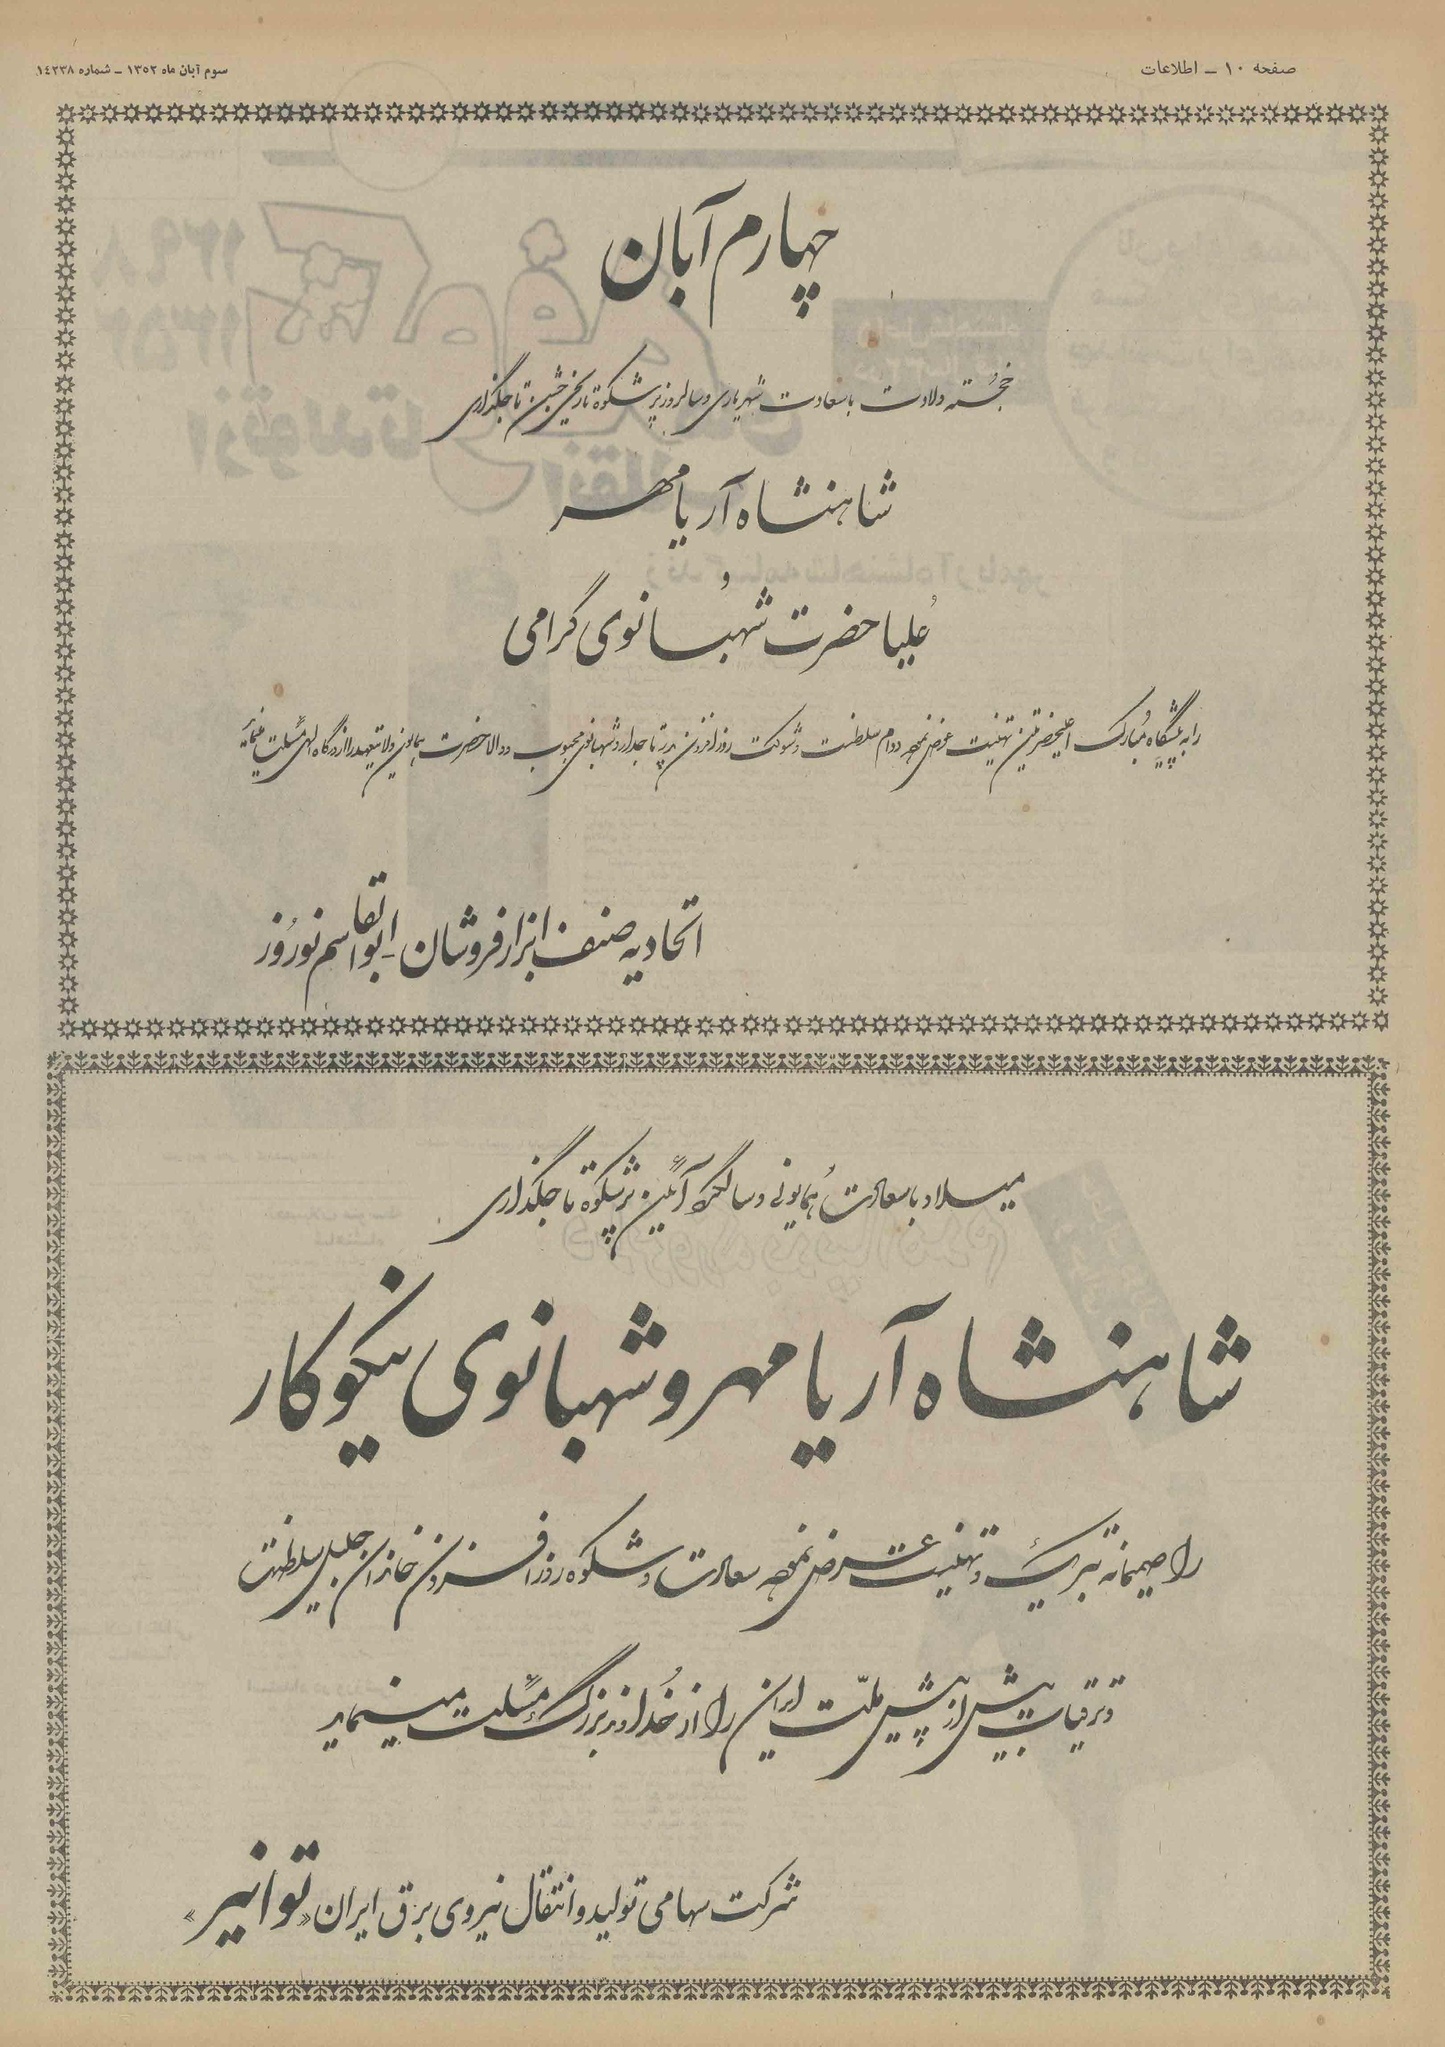 صفحه ۱۰ ـ اطلاعات
سوم آبان ماه ۱۳۵۲ ـ شماره ۱۴۲۳۸
چهارم آبان
خجسته ولادت باسعادت شهریاری و سالروز پرشکوه تاریخی جشن تاجگذاری
شاهنشاه آریامهر
و
علیاحضرت شهبانوی گرامی
را به پیشگاه مبارک اعلیحضرتین تهنیت عرض نموده دوام سلطنت و شوکت روزافزون پدر تاجدار و شهبانوی محبوب و والاحضرت همایون ولایتعهد را از درگاه الهی مسئلت مینماید
اتحادیه صنف ابزار فروشان ـ ابوالقاسم نوروز
میلاد باسعادت همایونی و سالگرد آئین پرشکوه تاجگذاری
شاهنشاه آریامهر و شهبانوی نیکوکار
را صمیمانه تبریک و تهنیت عرض نموده سعادت و شکوه روزافزون خاندان جلیل سلطنت
و ترقیات بیش از پیش ملت ایران را از خداوند بزرگ مسئلت مینماید
شرکت سهامی تولید و انتقال نیروی برق ایران «توانیر»